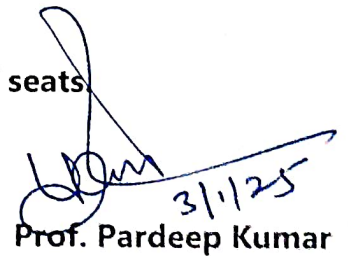 seats.
3/1/25
Prof. Pardeep Kumar